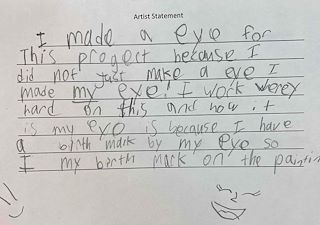 Artist Statement
I made a eye for
This progect because I
did not just make a eye I
made my eye! I work werey
hard on this and how it
is my eye is because I have
a birth mark by my eye so
I my birth mark on the paintin